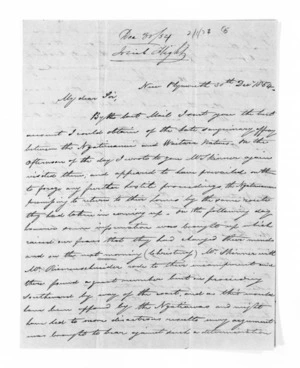 Dec 30/54
Josiah Flight
New Plymouth 30th Decr 1854
My dear Sir,
By the last Mail I sent you the best
account I could obtain of the late sanguinary affray
between the Ngatiruanui and Waitara Natives. On the
afternoon of the day I wrote to you Mr Skinner again
visited them, and appeared to have prevailed on them
to forego any further hostile proceedings the Ngatiruanui
promising to return to their homes by the same route
they had taken in coming up. On the following day
however some information was brought of which
caused our fears that they had changed their minds
and on the next morning (Christmas) Mr Skinner with
Mr Riemenschneider rode to their encampment and
there found a great number bent on proceeding
Southward by way of the coast, and as this would
have been opposed by the Ngatiawas and might
have led to more disastrous results every argument
was brought to bear against such a determination